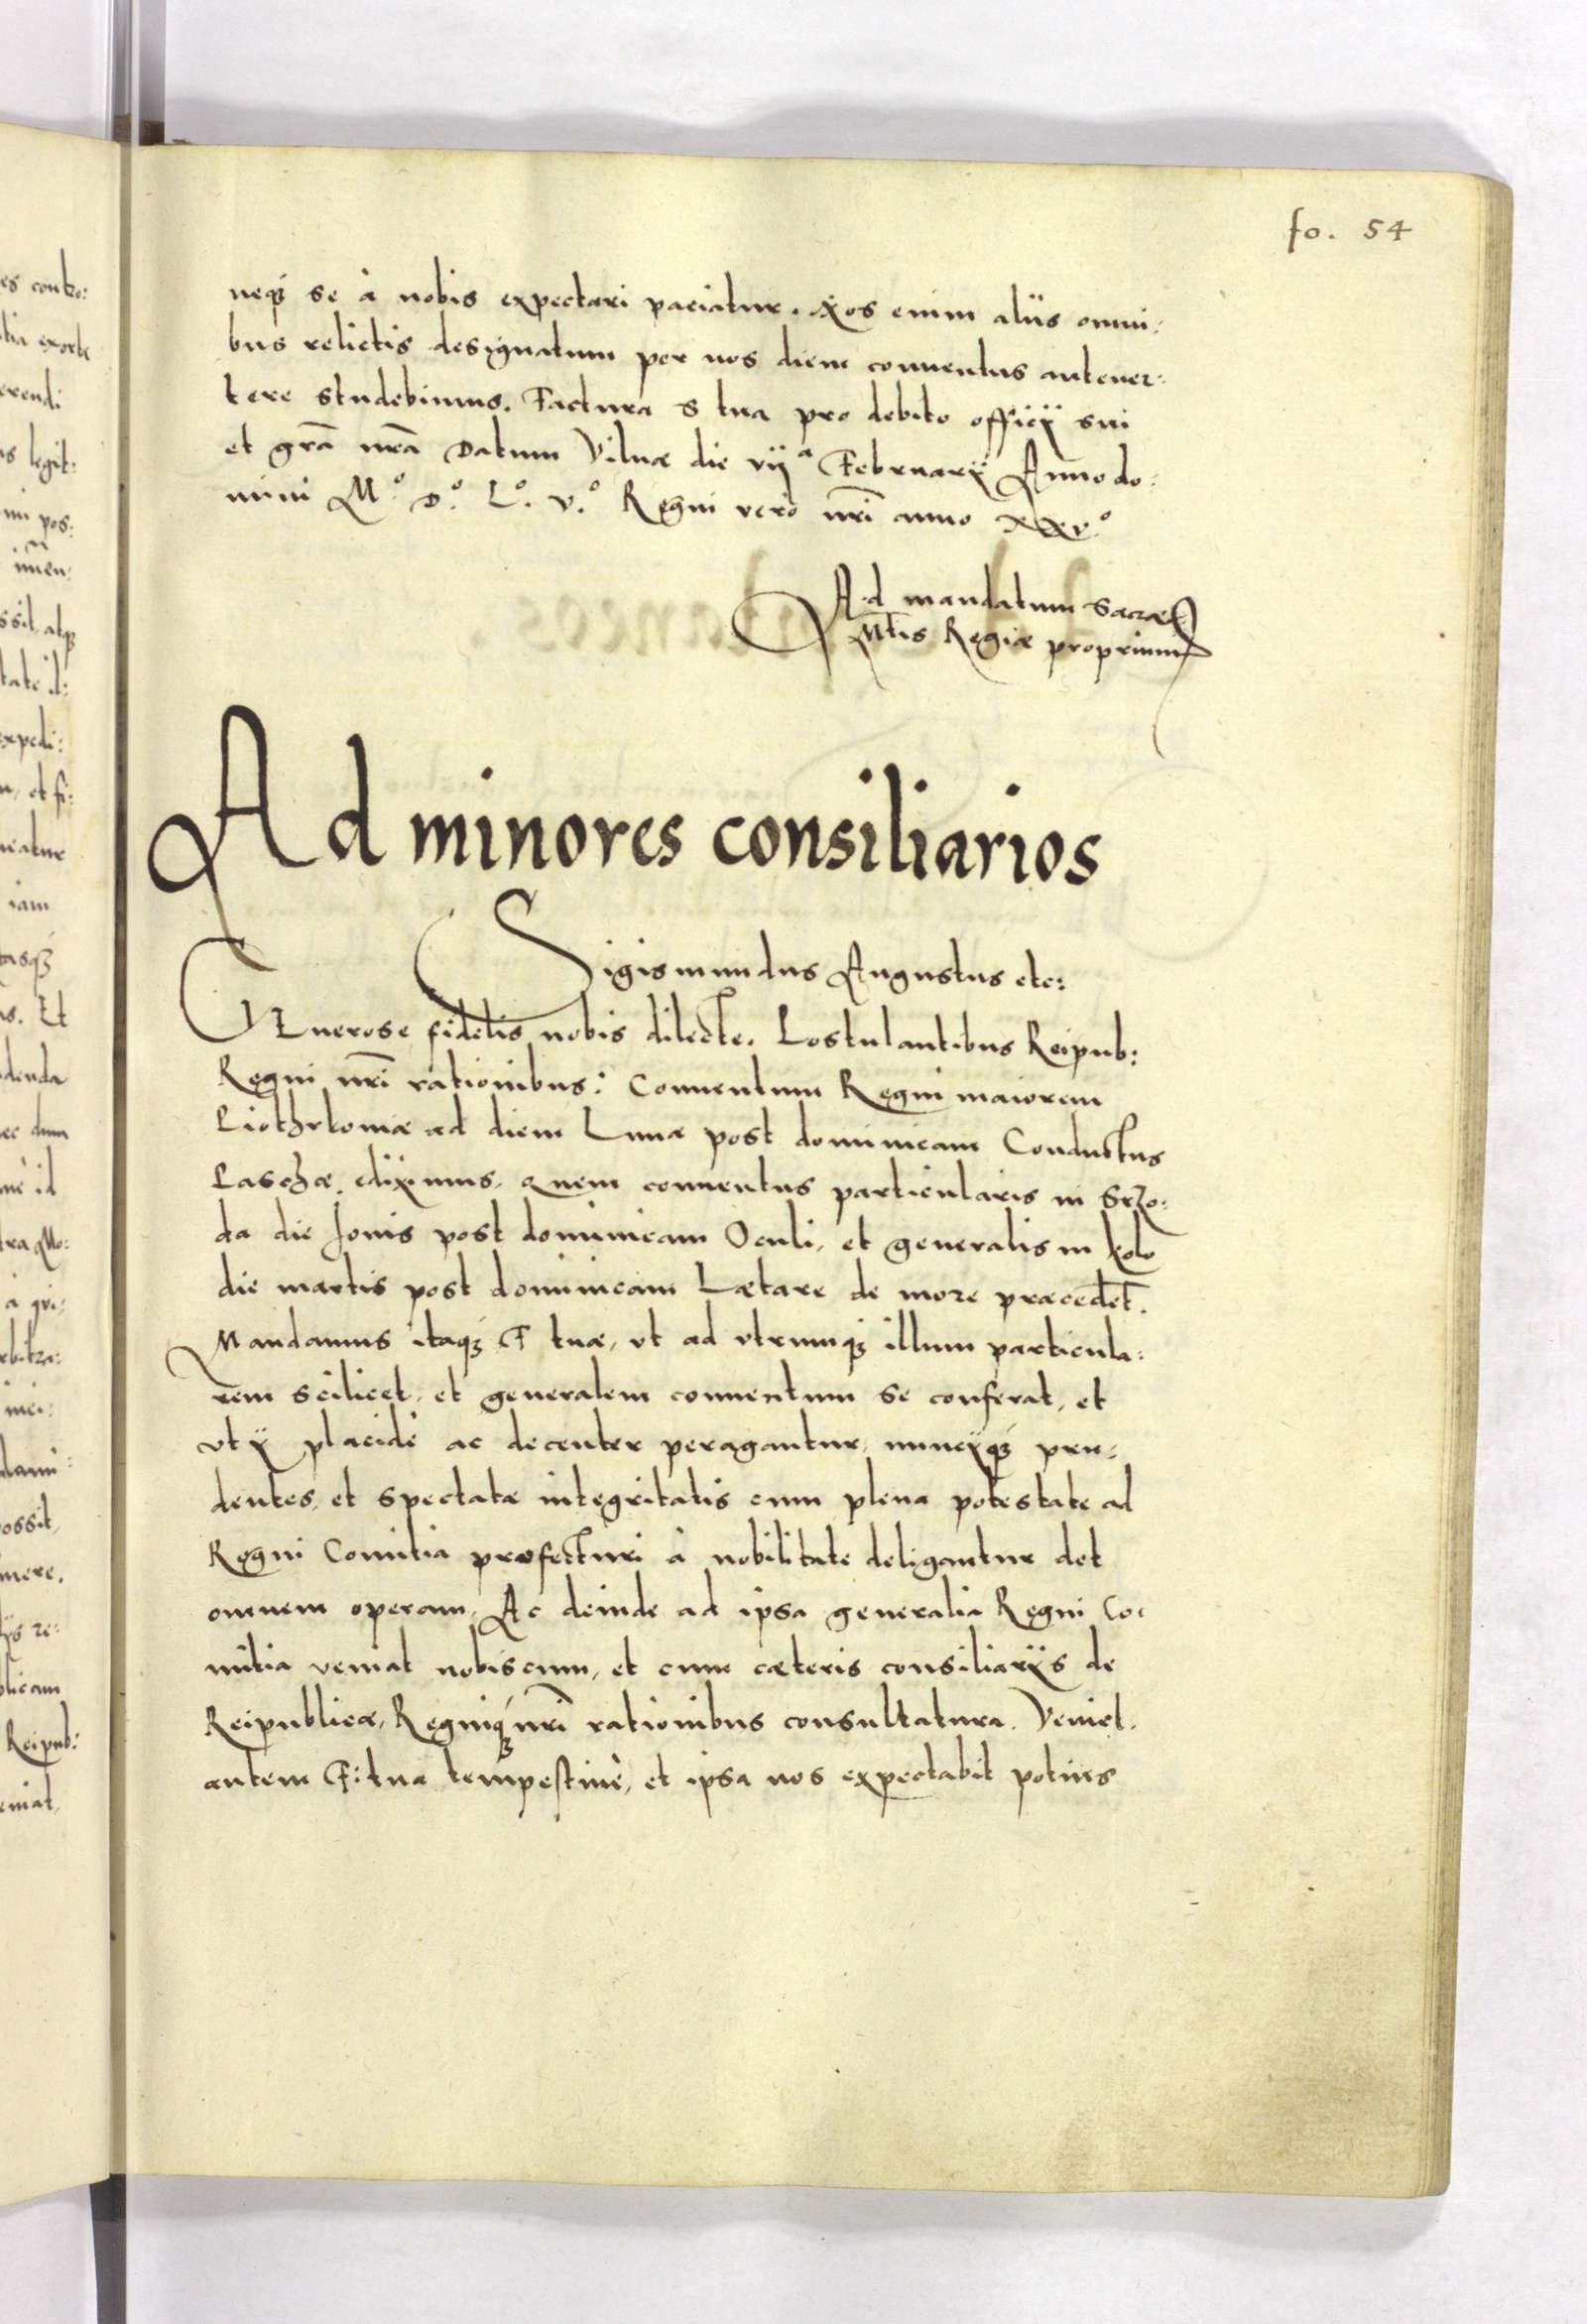 fo. 54
neqȝ se à nobis expectari paciatur. Nos enim alüs omni:
bus relictis designatum per nos diem conuentus anteuer:
tere studebimus. Factura S tua pro debito officÿ sui
et grã nrã Datum Vilnæ die vijª Februarÿ Anno do:
mini M.º D.º L.º V.º Regni vero nrĩ anno XXV.º
Ad mandatum Sacræ
Mtis Regiæ proprium
Ad minores consiliarios
Sigismundus Augustus etc:
GEnerose fidelis nobis dilecte. Postulantibus Reipub:
Regni nrĩ rationibus: Conuentum Regni maiorem
Piothrkouiæ ad diem Lunæ post dominicam Conductus
Paschæ, ediximus. Quem conuentus particularis in Srzo:
da die Jouis post dominicam Oculi, et generalis in Kolo
die martis post dominicam Lætare de more præcedet.
Mandamus itaqȝ F tuæ, vt ad vtrumqȝ illum particula:
rem scilicet, et generalem conuentum se conferat, et
vt ÿ placidè ac decenter peragantur, nuncÿqȝ pru:
dentes, et spectatæ integritatis cum plena potestate ad
Regni Comitia profecturi à nobilitate deligantur det
omnem operam, Ac deinde ad ipsa generalia Regni Co:
mitia veniat nobiscum, et cum cæteris consiliarÿs de
Reipublicæ, Regniqȝ nrĩ rationibus consultatura. Veniet
autem F. tua tempestiuè, et ipsa nos expectabit potius